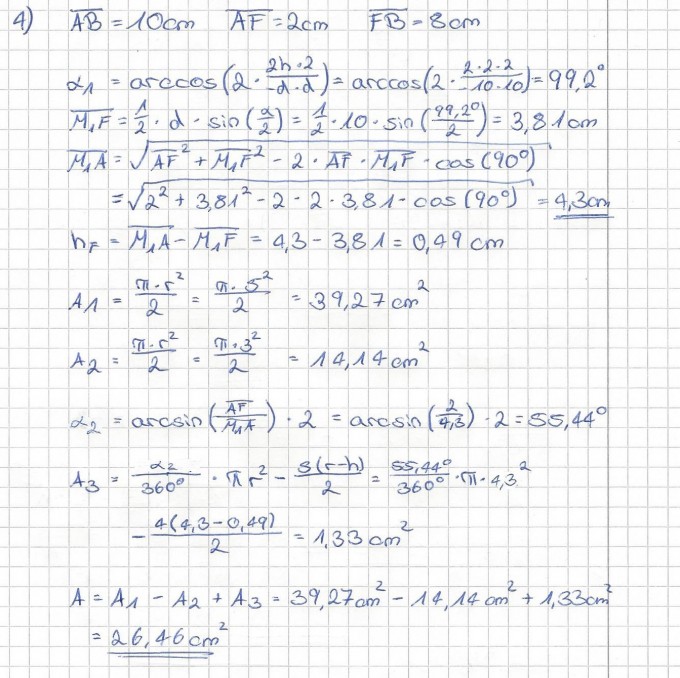 4) A̅B̅ = 10cm A̅F̅ = 2cm F̅B̅ = 8cm
α₁ = arccos(2 · (2h·2)/(-d·d)) = arccos(2 · (2·2·2)/(-10·10)) = 99,2°
M̅₁F̅ = 1/2 · d · sin(α/2) = 1/2 · 10 · sin(99,2°/2) = 3,81cm
M̅₁A̅ = √(A̅F̅² + M̅₁F̅² - 2 · A̅F̅ · M̅₁F̅ · cos(90°))
= √(2² + 3,81² - 2 - 2 · 3,81 - cos(90°)) = 4,3cm
h_F = M̅₁A̅ - M̅₁F̅ = 4,3 - 3,81 = 0,49 cm
A1 = (π·r²)/2 = (π·5²)/2 = 39,27cm²
A2 = (π·r²)/2 = (π·3²)/2 = 14,14cm²
α₂ = arcsin(A̅F̅/M̅₁A̅) · 2 = arcsin(2/4,3) · 2 = 55,44°
A3 = α₂/360° · πr² - (s(r-h))/2 = 55,44°/360° · π · 4,3²
- (4(4,3 - 0,49))/2 = 1,33cm²
A = A1 - A2 + A3 = 39,27cm² - 14,14cm² + 1,33cm²
= 26,46cm²